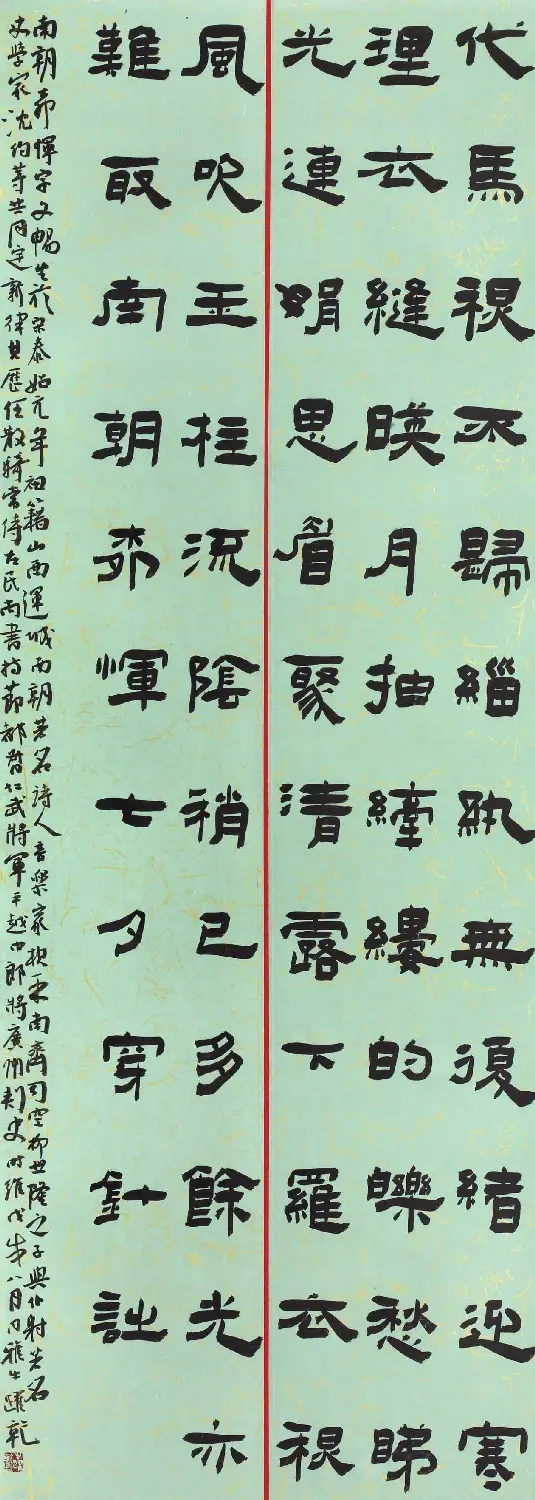 代馬秋不歸緇紈無復緒迎寒
理衣縫暎月抽纖縷的皪愁睇
光連娟思眉聚清露下羅衣秋
風吹玉柱流陰稍已多餘光亦
難取南朝柳惲七夕穿針詩
南朝柳惲字文暢生於宋泰始元年祖籍山西運城南朝著名詩人音樂家棋手南齊司空柳世隆之子與僕射著名
史學家沈約等共同定新律其歷任散騎常侍左民尚書持節都督仁武將軍平越中郎將廣州刺史時維戊戌八月牛躍乾